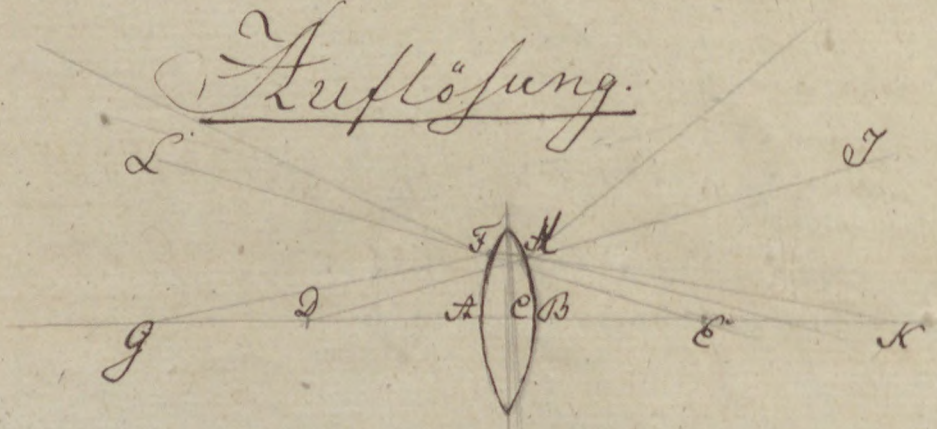 Auflösung.
L J
F M
D A C B
G E K